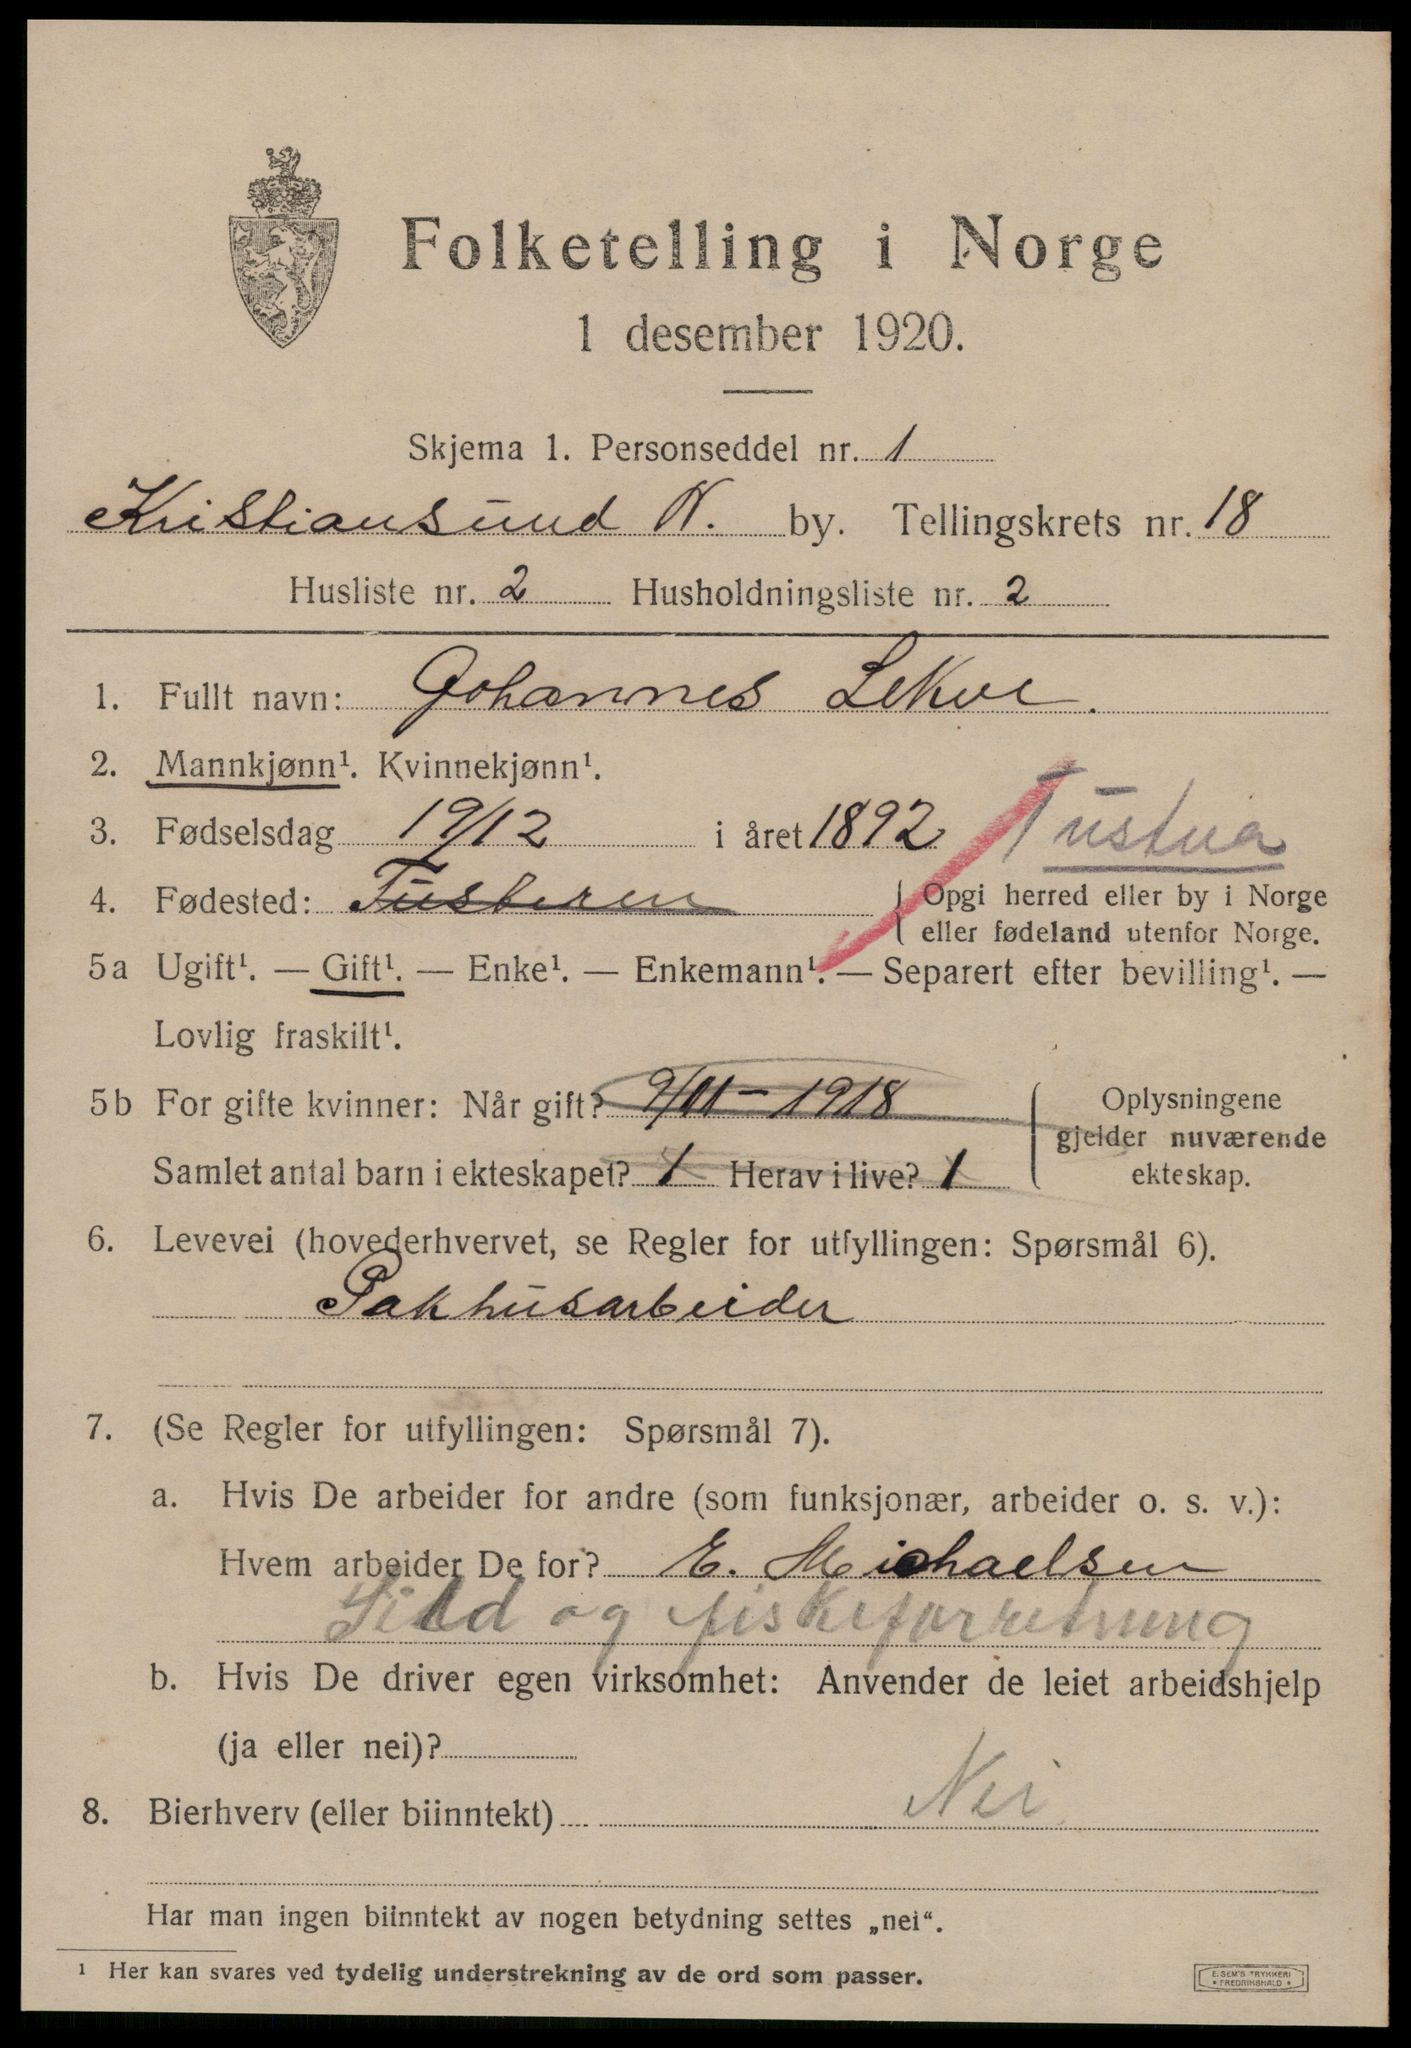 Folketelling i Norge
1 desember 1920.
Skjema 1. Personseddel nr. 1
Kristiansund N. by. Tellingskrets nr. 18
Husliste nr. 2 Husholdningsliste nr. 2
1. Fullt navn: Johannes Lekve.
2. Mannkjønn¹. Kvinnekjønn¹.
3. Fødselsdag 19/12 i året 1892 Tustna
4. Fødested: Tusteren { Opgi herred eller by i Norge
eller fødeland utenfor Norge.
5a Ugift¹. — Gift¹. — Enke¹. — Enkemann¹. — Separert efter bevilling¹. —
Lovlig fraskilt¹.
5b For gifte kvinner: Når gift? 9/11 – 1918 { Oplysningene
gjelder nuværende
Samlet antal barn i ekteskapet? 1 Herav i live? 1 ekteskap.
6. Levevei (hovederhvervet, se Regler for utfyllingen: Spørsmål 6).
Pakhusarbeider
7. (Se Regler for utfyllingen: Spørsmål 7).
a. Hvis De arbeider for andre (som funksjonær, arbeider o. s. v.):
Hvem arbeider De for? E. Michaelsen
Sild og fiskeforretning
b. Hvis De driver egen virksomhet: Anvender de leiet arbeidshjelp
(ja eller nei)?
8. Bierhverv (eller biinntekt) Nei
Har man ingen biinntekt av nogen betydning settes „nei“.
¹ Her kan svares ved tydelig understrekning av de ord som passer.
E. SEM'S TRYKKERI
* FREDRIKSHALD *